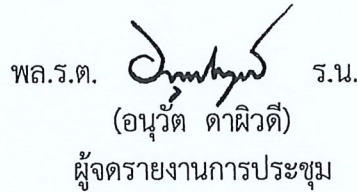 พล.ร.ต. ร.น.
(อนุวัต ดาผิวดี)
ผู้จดรายงานการประชุม